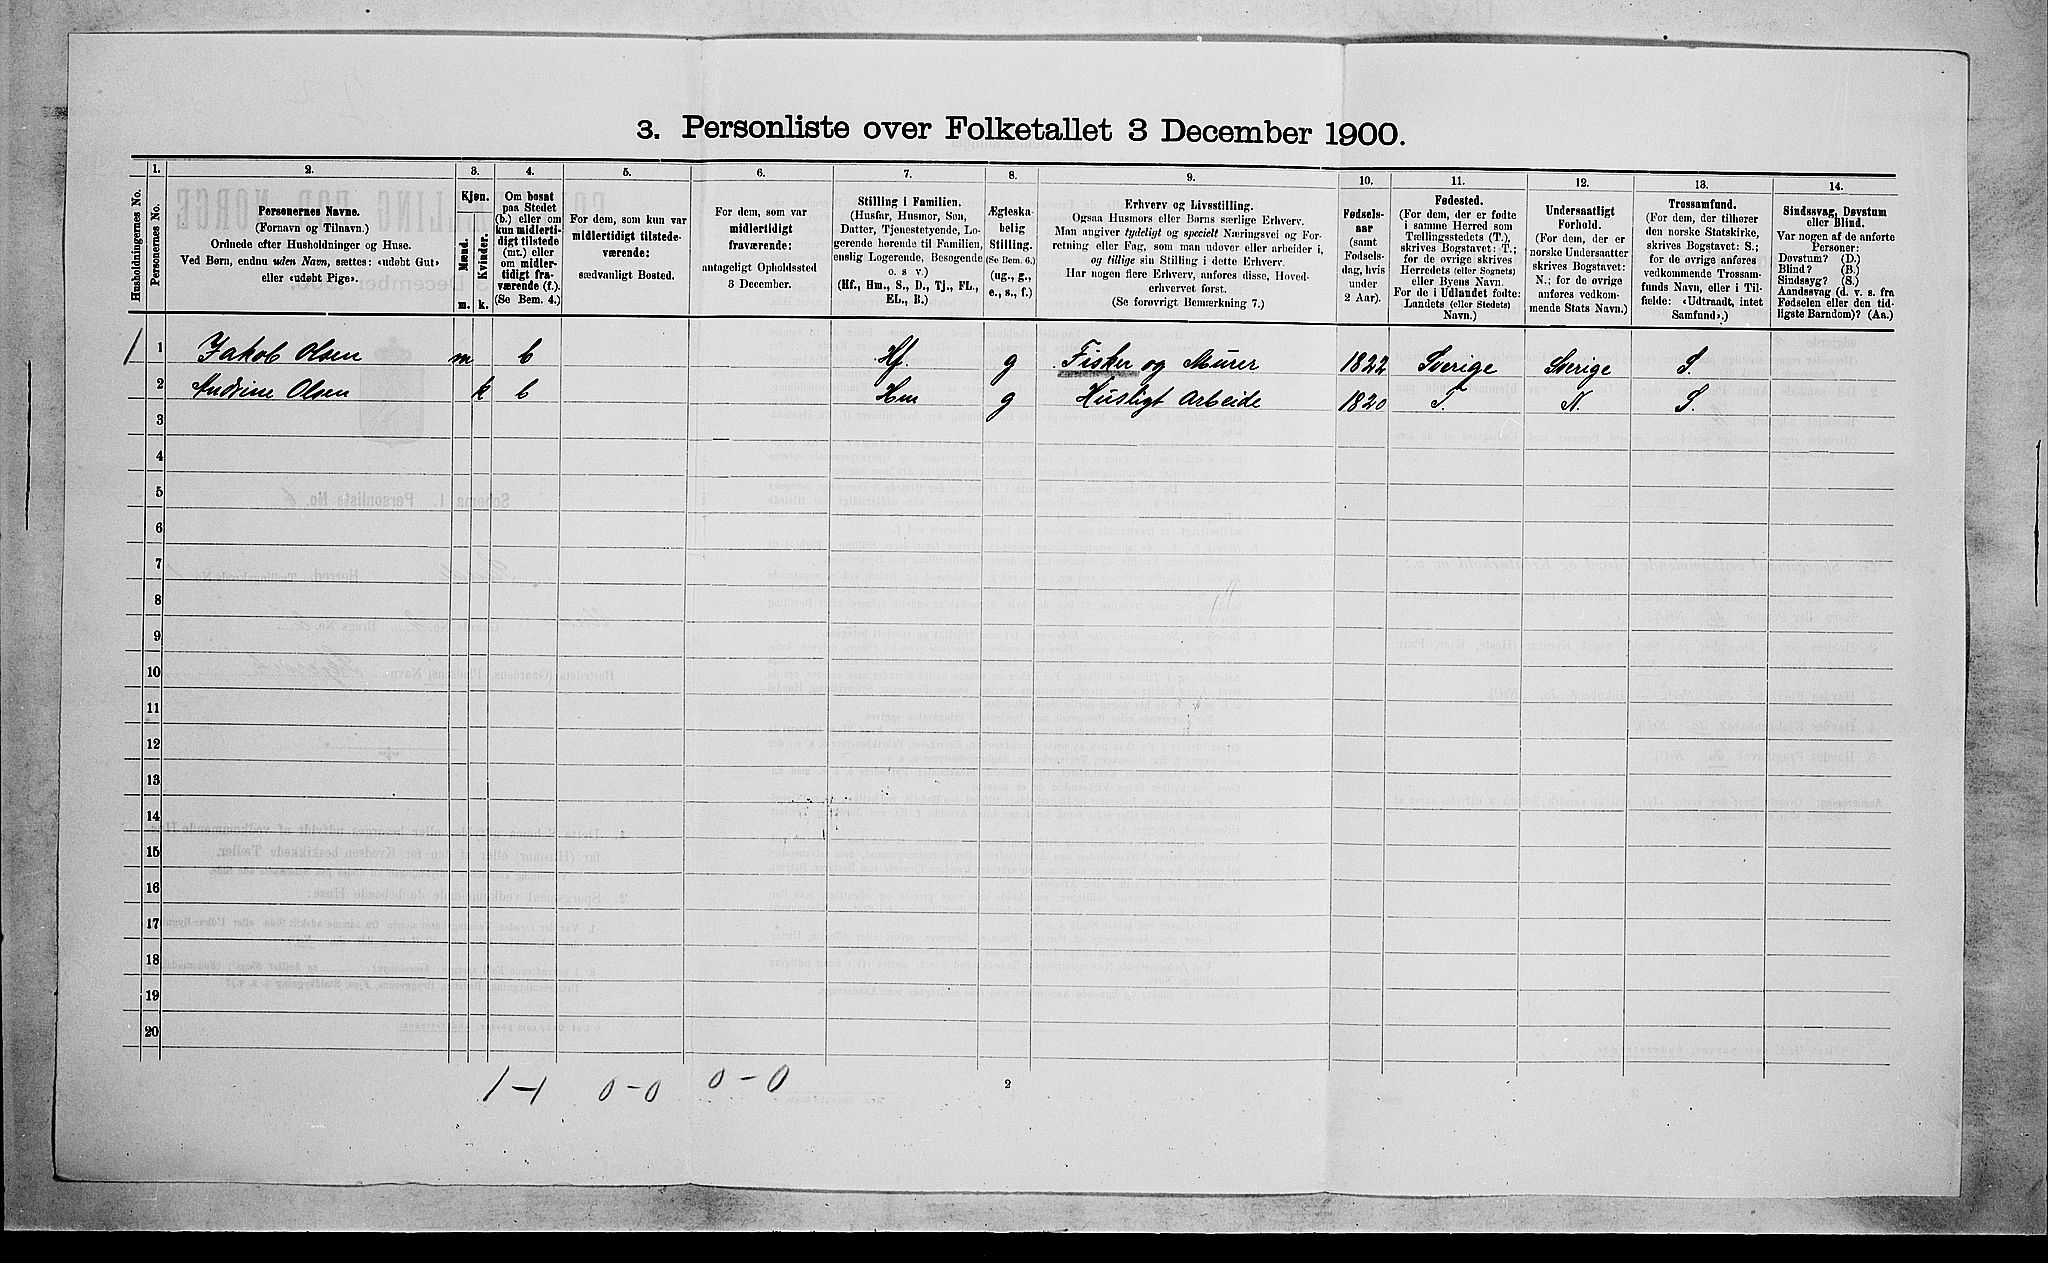 3. Personliste over Folketallet 3 December 1900.
Husholdningernes No.
1.
Personernes No.
2.
Personernes Navne.
(Fornavn og Tilnavn.)
Ordnede efter Husholdninger og Huse.
Ved Børn, endnu uden Navn, sættes: «udøbt Gut»
eller «udøbt Pige».
3.
Kjøn.
Mænd.
Kvinder.
m. k.
4.
Om bosat
paa Stedet
(b.) eller om
kun midlerti-
digt tilstede
(mt.) eller
om midler-
tidigt fra-
værende (f.)
(Se Bem. 4.)
5.
For dem, som kun var
midlertidigt tilstede-
værende:
sædvanligt Bosted.
6.
For dem, som var
midlertidigt
fraværende:
antageligt Opholdssted
3 December.
7.
Stilling i Familien.
(Husfar, Husmor, Søn,
Datter, Tjenestetyende, Lo-
gerende hørende til Familien,
enslig Logerende, Besøgende
o. s. v.)
(Hf., Hm., S., D., Tj., FL.,
EL., B.)
8.
Ægteska-
belig
Stilling.
(Se Bem. 6.)
(ug., g.,
e., s., f.)
9.
Erhverv og Livsstilling.
Ogsaa Husmors eller Børns særlige Erhverv.
Man angiver tydeligt og specielt Næringsvei og For-
retning eller Fag, som man udøver eller arbeider i,
og tillige sin Stilling i dette Erhverv.
Har nogen flere Erhverv, anføres disse, Hoved-
erhvervet først.
(Se forøvrigt Bemærkning 7.)
10.
Fødsels-
aar
(samt
Fødsels-
dag, hvis
under
2 Aar).
11.
Fødested.
(For dem, der er fødte
i samme Herred som
Tællingsstedets (T.),
skrives Bogstavet: T.;
for de øvrige skrives
Herredets (eller Sognets)
eller Byens Navn.
For de i Udlandet fødte:
Landets (eller Stedets)
Navn.)
12.
Undersaatligt
Forhold.
(For dem, der er
norske Undersaatter
skrives Bogstavet:
N.; for de øvrige
anføres vedkom-
mende Stats Navn.)
13.
Trossamfund.
(For dem, der tilhører
den norske Statskirke,
skrives Bogstavet: S.;
for de øvrige anføres
vedkommende Trossam-
funds Navn, eller i Til-
fælde: «Udtraadt, intet
Samfund».)
14.
Sindssvag, Døvstum
eller Blind.
Var nogen af de anførte
Personer:
Døvstum? (D.)
Blind? (B.)
Sindssyg? (S.)
Aandssvag (d. v. s. fra
Fødselen eller den tid-
ligste Barndom)? (Aa.)
1 1 Jakob Olsen m b Hf. g Fisker og Murer 1822 Sverige Sverige S.
2 Andrine Olsen k b Hm g Husligt Arbeide 1820 T. N. S.
3
4
5
6
7
8
9
10
11
12
13
14
15
16
17
18
19
20
1-1 0-0 0-0 2